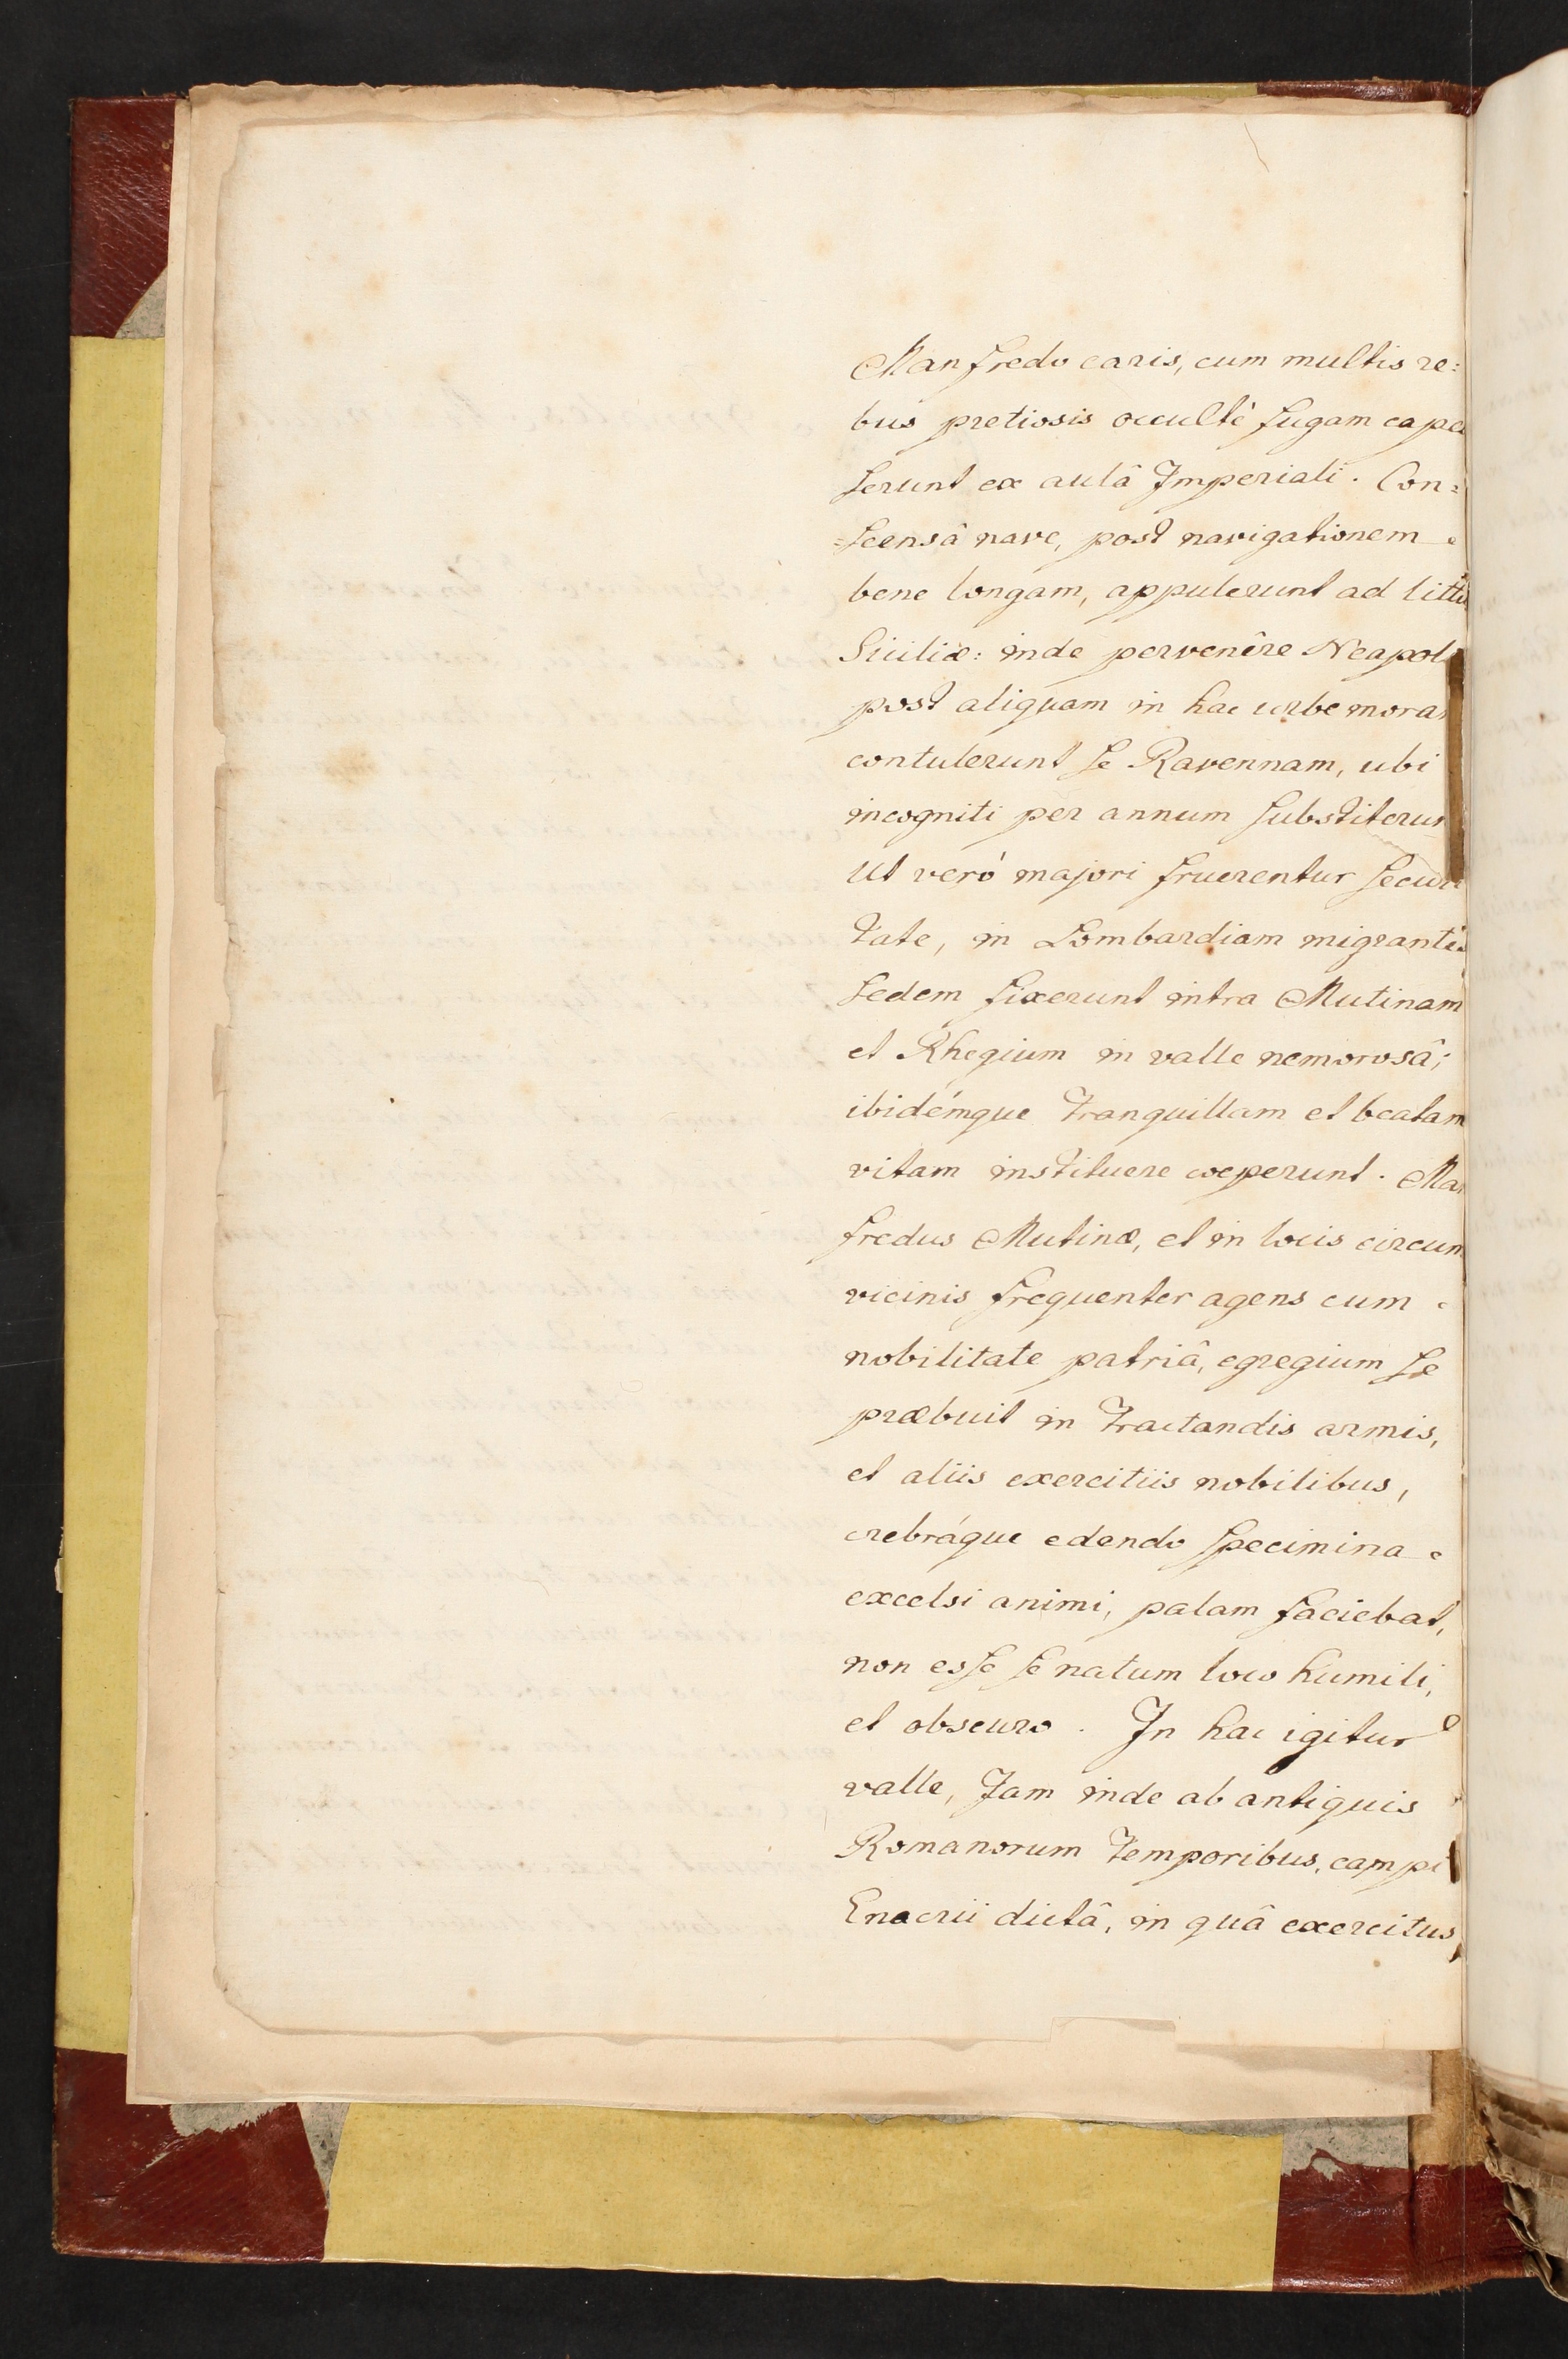 Manfredo caris, cum multis re=
bus pretiosis occultè fugam cape
serunt ex aulâ Imperiali. Con=
=scensâ nave, post navigationem
bene longam, appulerunt ad littu
Siciliæ: inde pervenêre Neapol
post aliquam in hac urbe mora
contulerunt se Ravennam, ubi
incogniti per annum substiterun
Ut verò majori fruerentur securi
tate, in Lombardiam migrantes
sedem fixerunt intra Mutinam
et Rhegium in valle nemorosâ;
ibidémque tranquillam et beatam
vitam instituere coeperunt. Man
fredus Mutinæ, et in locis circum
vicinis frequenter agens cum
nobilitate patriâ, egregium se
præbuit in tractandis armis,
et aliis exercitiis nobilibus,
crebráque edendo specimina
excelsi animi, palam faciebat,
non esse se natum loco humili,
et obscuro. In hac igitur
valle, Jam inde ab antiquis
Romanorum temporibus, campi
Enacrii dictâ, in quâ exercitus,